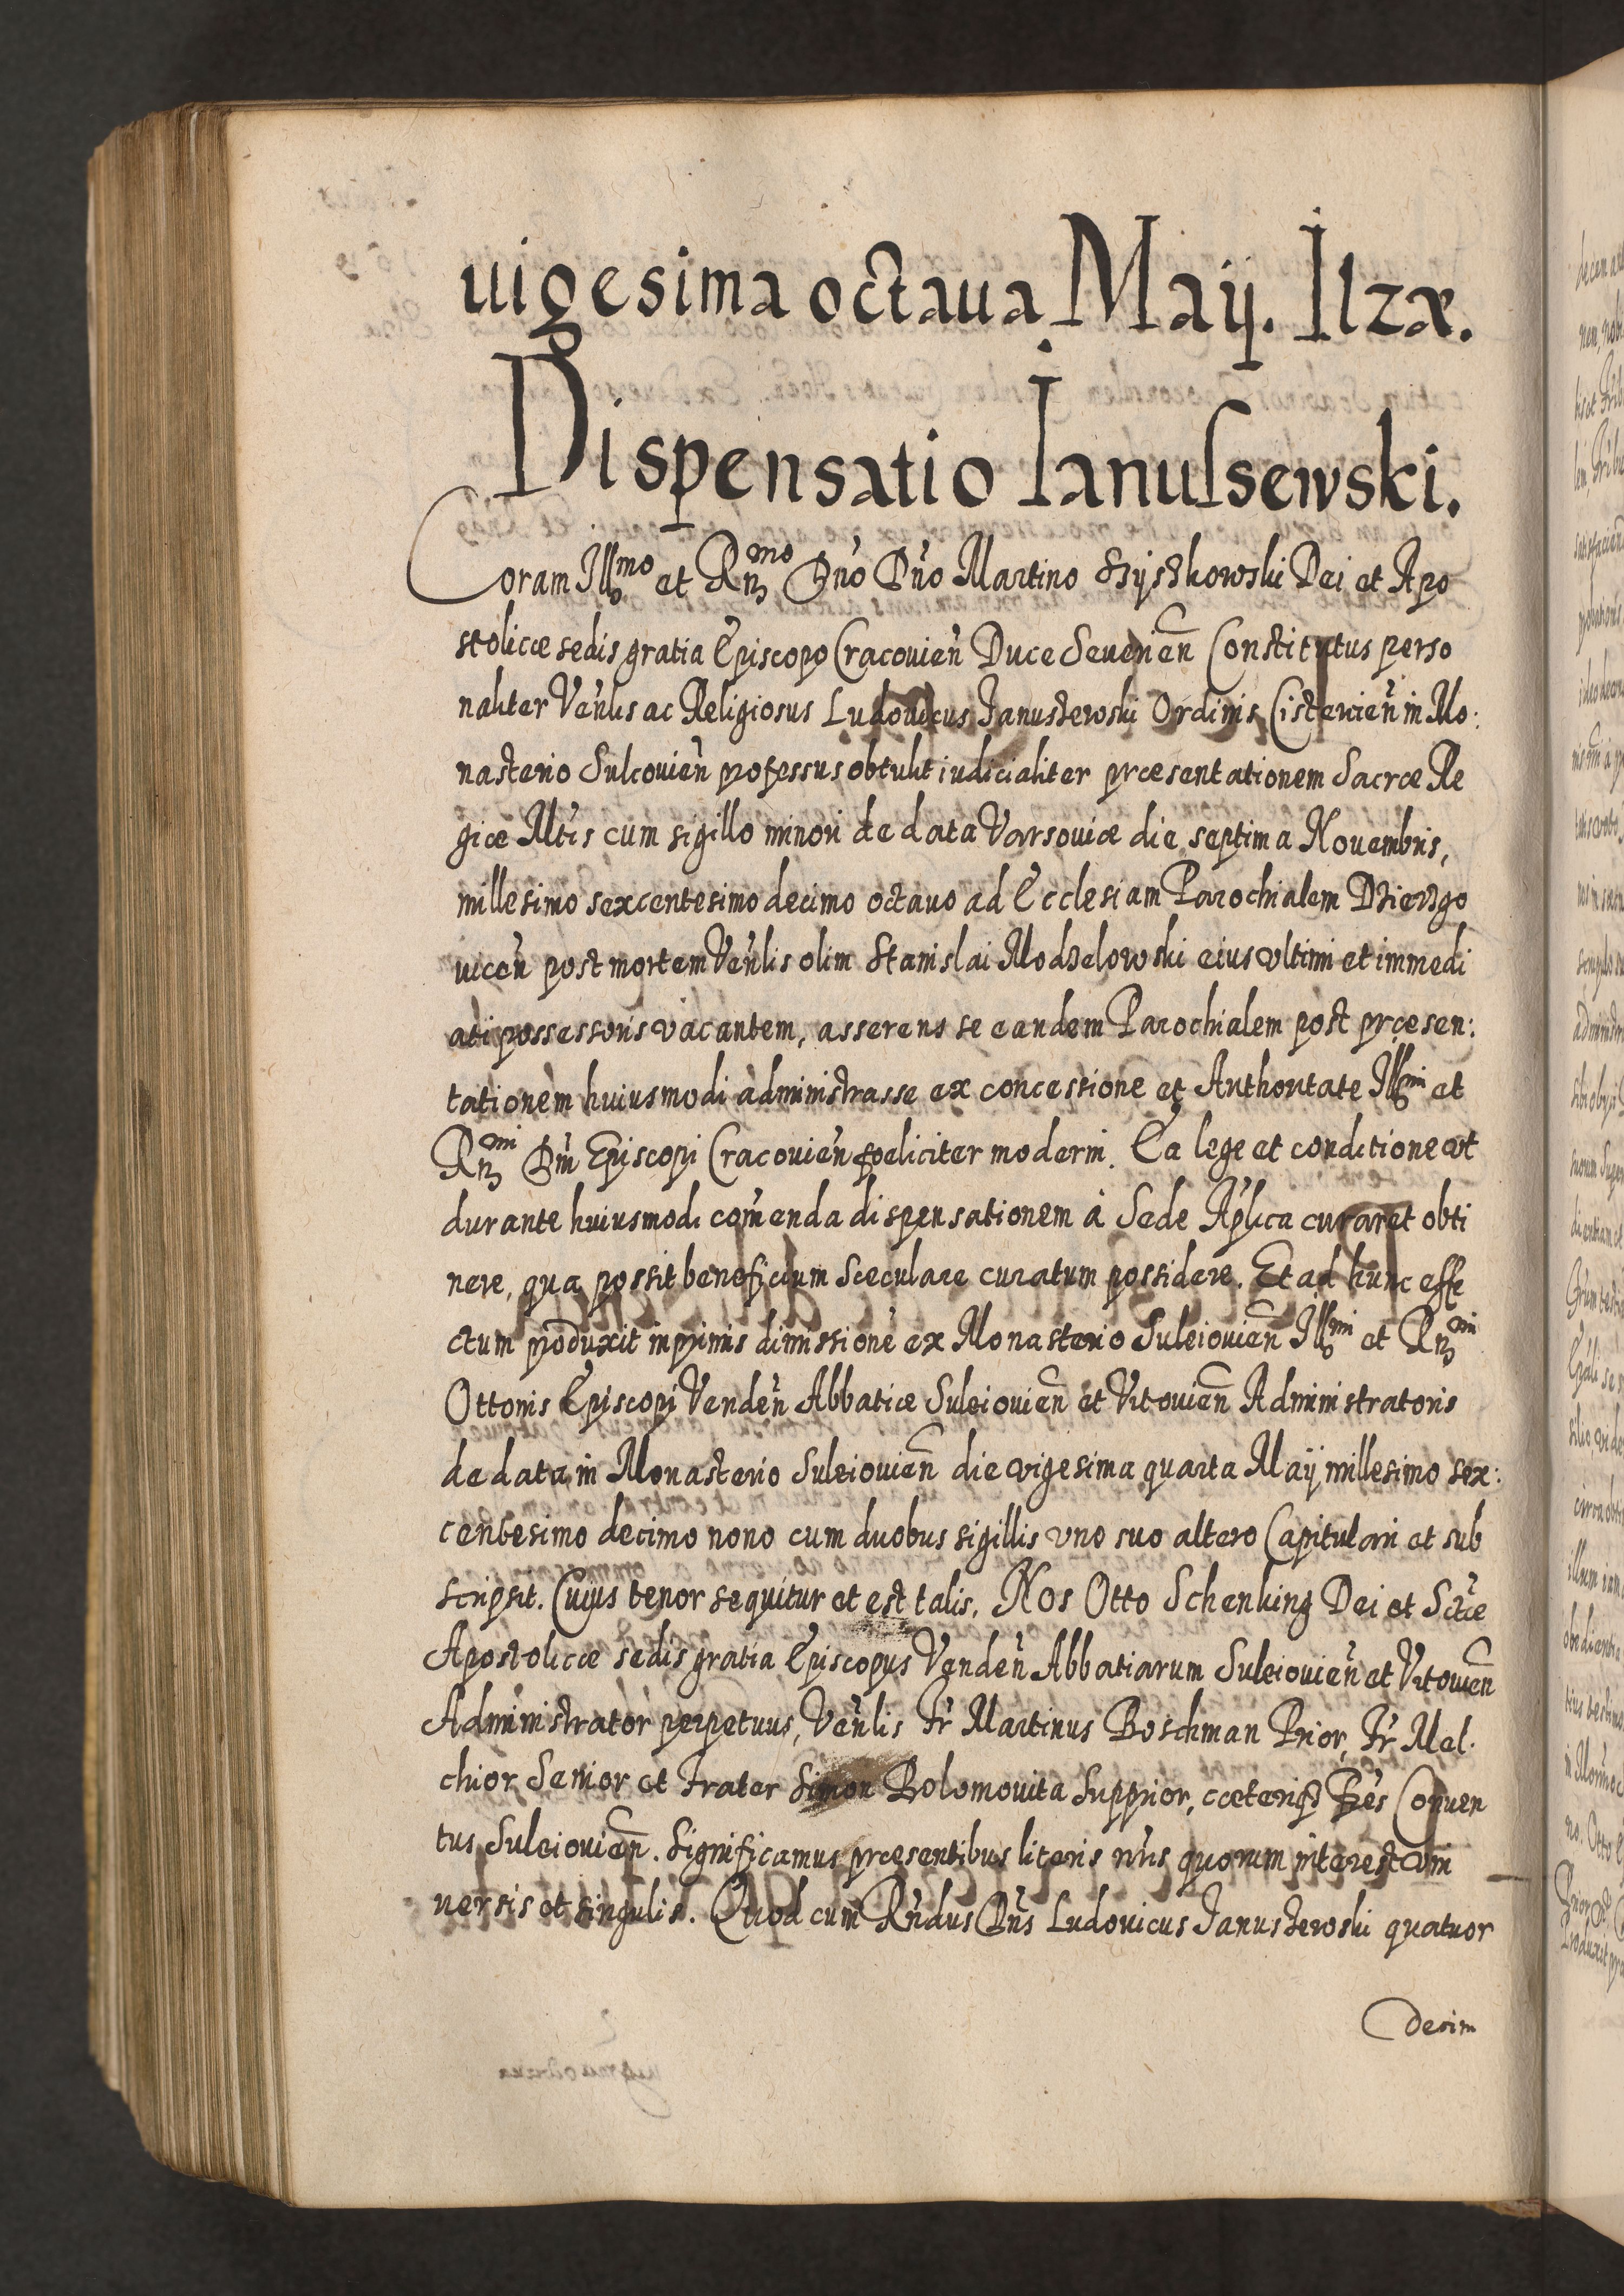 uigesima octaua Maij. Ilzæ.
Dispensatio Ianuſsewski.
Coram Illmo et Rmo Dno Dno Martino Szyszkowski Dei et Apo
stolicæ sedis gratia Episcopo Cracouien Duce Seuerien Constitutus perso
naliter Venlis ac Religiosus Ludouicus Januszewski Ordinis Cistercien in Mo:
nasterio Sulcouien professus obtulit iudicialiter præsentationem Sacræ Re
giæ Mtis cum sigillo minori de data Varsouiæ die septima Nouembris,
millesimo sexcentesimo decimo octauo ad Ecclesiam Parochialem Dzierzgo
uicen post mortem Venlis olim Stanislai Modzelowski eius vltimi et immedi
ati possessoris vacantem, asserens se eandem Parochialem post præsen:
tationem huiusmodi administrasse ex concessione et Authoritate Illmi et
Rmi Dni Episcopi Cracouien fœliciter moderni. Ea lege et conditione vt
durante huiusmodi comenda dispensationem à Sede Aplica curaret obti
nere, qua possit beneficium Sæculare curatum possidere. Et ad hunc effe
ctum produxit inprimis dimissione ex Monasterio Suleiouien Illmi et Rmi
Ottonis Episcopi Venden Abbatiæ Suleiouien et Vitouien Administratoris
de data in Monasterio Suleiouien die vigesima quarta Maij millesimo sex:
centesimo decimo nono cum duobus sigillis vno suo altero Capitulari et sub
scripsit. Cuius tenor sequitur et est talis. Nos Otto Schenking Dei et Sctæ
Apostolicæ sedis gratia Episcopus Venden Abbatiarum Suleiouien et Vitouien
Administrator perpetuus, Venlis Fr Martinus Boschman Prior, Fr Mel.
chior Senior et Frater Simon Bolomouita Supprior, cæteriqz Fres Conuen
tus Suleiouien. Significamus præsentibus literis nris quorum interest vni
uersis et singulis. Quod cum Rndus Dns Ludouicus Januszewski quatuor
decim